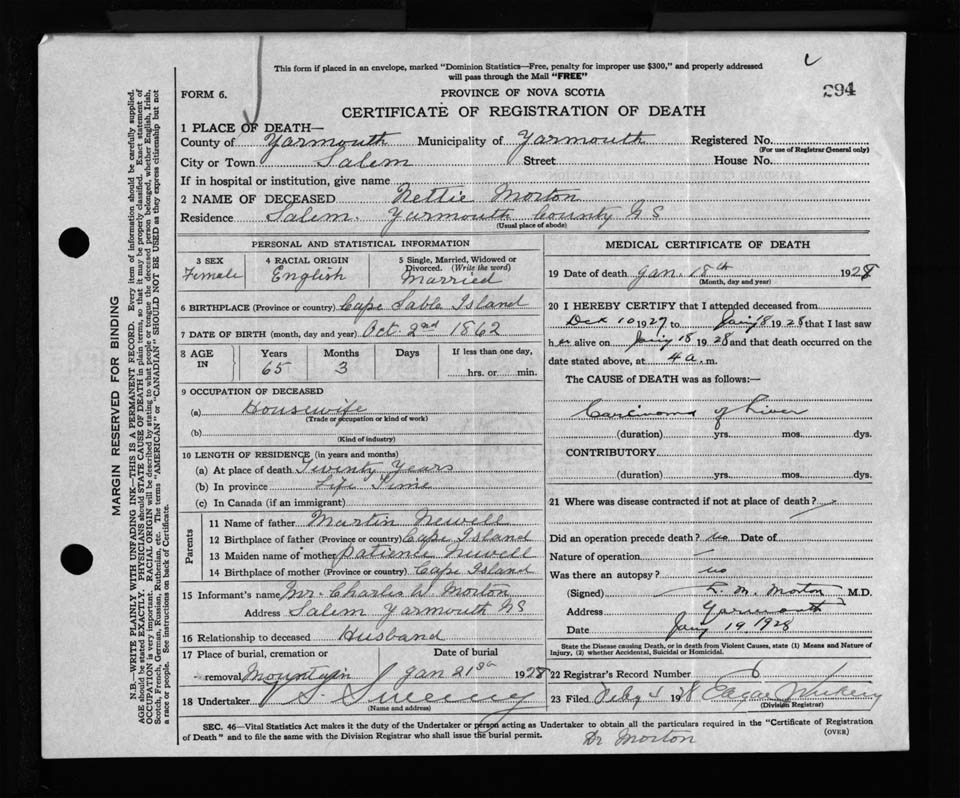 This form if placed in an envelope, marked "Dominion Statistics—Free, penalty for improper use $300," and properly addressed
will pass through the Mail "FREE"
FORM 6.
PROVINCE OF NOVA SCOTIA
294
CERTIFICATE OF REGISTRATION OF DEATH
1 PLACE OF DEATH—
County of Yarmouth Municipality of Yarmouth Registered No.
(For use of Registrar General only)
City or Town Salem Street House No.
If in hospital or institution, give name
2 NAME OF DECEASED Nettie Morton
Residence Salem. Yarmouth County N S
(Usual place of abode)
PERSONAL AND STATISTICAL INFORMATION
3 SEX Female
4 RACIAL ORIGIN English
5 Single, Married, Widowed or Divorced. (Write the word) Married
6 BIRTHPLACE (Province or country) Cape Sable Island
7 DATE OF BIRTH (month, day and year) Oct. 2nd 1862
8 AGE IN Years 65 Months 3 Days If less than one day, hrs. or min.
9 OCCUPATION OF DECEASED
(a) Housewife
(Trade or occupation or kind of work)
(b)
(Kind of industry)
10 LENGTH OF RESIDENCE (in years and months)
(a) At place of death Twenty Years
(b) In province Life Time
(c) In Canada (if an immigrant)
Parents
11 Name of father Martin Newell
12 Birthplace of father (Province or country) Cape Island
13 Maiden name of mother Patience Newell
14 Birthplace of mother (Province or country) Cape Island
15 Informant's name Mr. Charles W. Morton
Address Salem Yarmouth NS
16 Relationship to deceased Husband
17 Place of burial, cremation or Date of burial
removal Mountain Jan 21st 1928
18 Undertaker Sweeny
(Name and address)
MEDICAL CERTIFICATE OF DEATH
19 Date of death Jan. 18th 1928
(Month, day and year)
20 I HEREBY CERTIFY that I attended deceased from
Dec 10 1927 to Jany 18 1928 that I last saw
her alive on Jany 18 1928 and that death occurred on the
date stated above, at 4 a. m.
The CAUSE of DEATH was as follows:—
Carcinoma of Liver
(duration) yrs. mos. dys.
CONTRIBUTORY
(duration) yrs. mos. dys.
21 Where was disease contracted if not at place of death?
Did an operation precede death? no Date of
Nature of operation
Was there an autopsy? no
(Signed) Morton M.D.
Address Yarmouth
Date Jany 19, 1928
State the Disease causing Death, or in death from Violent Causes, state (1) Means and Nature of
Injury, (2) whether Accidental, Suicidal or Homicidal.
22 Registrar's Record Number, 6
23 Filed Feby 4 1928 Edgar
(Division Registrar)
SEC. 46—Vital Statistics Act makes it the duty of the Undertaker or person acting as Undertaker to obtain all the particulars required in the "Certificate of Registration
of Death" and to file the same with the Division Registrar who shall issue the burial permit.
(OVER)
Dr Morton
MARGIN RESERVED FOR BINDING
N.B.—WRITE PLAINLY WITH UNFADING INK—THIS IS A PERMANENT RECORD. Every item of information should be carefully supplied.
AGE should be stated EXACTLY. PHYSICIANS should STATE CAUSE OF DEATH in plain terms, so that it may be properly classified. Exact statement of
OCCUPATION is very important. RACIAL ORIGIN will be described by stating to what people or tongue the deceased person belonged, whether English, Irish,
Scotch, French, German, Russian, Ruthenian, etc. The terms "AMERICAN" or "CANADIAN" SHOULD NOT BE USED as they express citizenship but not
a race or people. See instructions on back of Certificate.